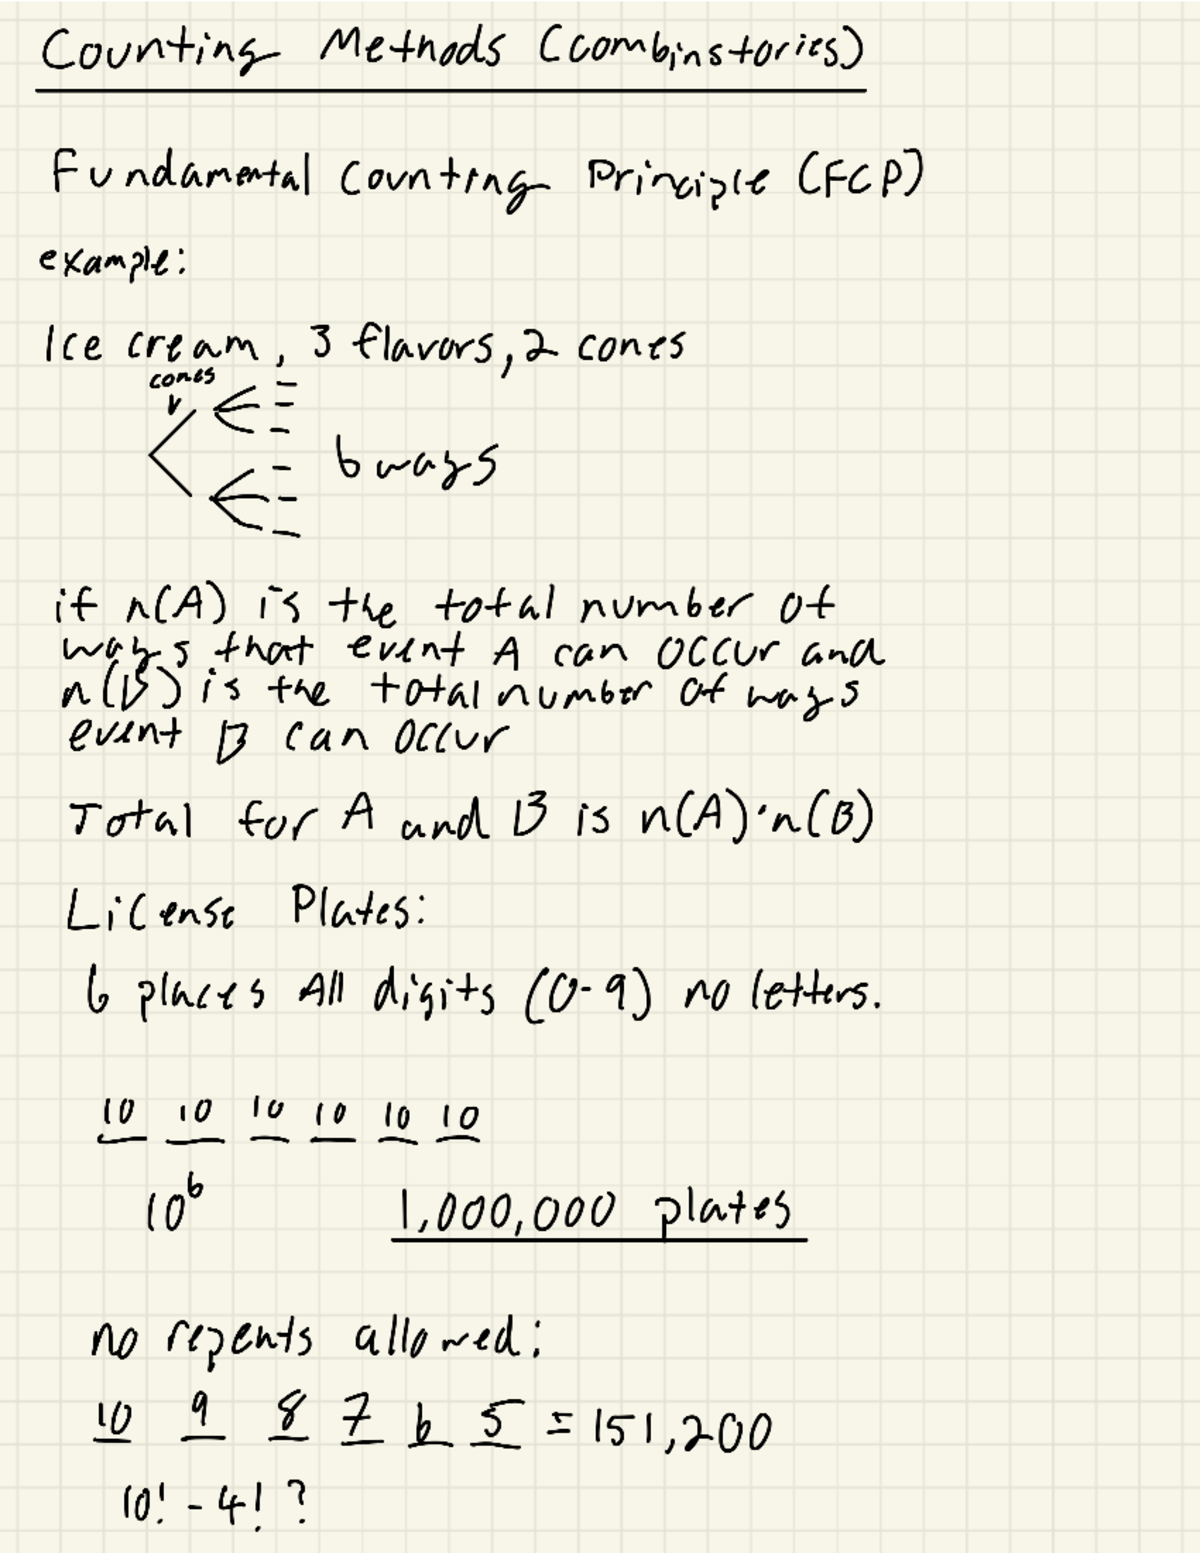 Counting Methods (combinstories)
Fundamental Counting Principle (FCP)
example:
Ice cream, 3 flavors, 2 cones
cones
6 ways
if n(A) is the total number of
ways that event A can occur and
n(B) is the total number of ways
event B can occur
Total for A and B is n(A)·n(B)
License Plates:
6 places All digits (0-9) no letters.
10 10 10 10 10 10
10⁶ 1,000,000 plates
no repeats allowed:
10 9 8 7 6 5 = 151,200
10! - 4! ?